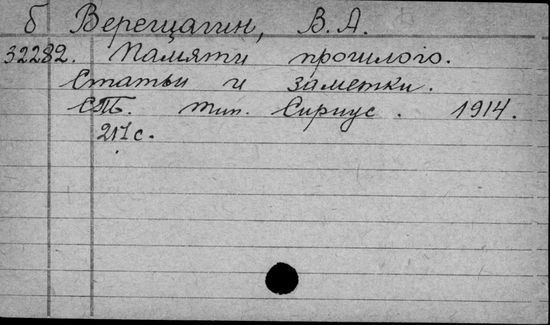 б Верещагин, В. А.
32282. Памяти прошлого.
Статьи и заметки.
СПБ. тип. Сириус. 1914.
217 с.